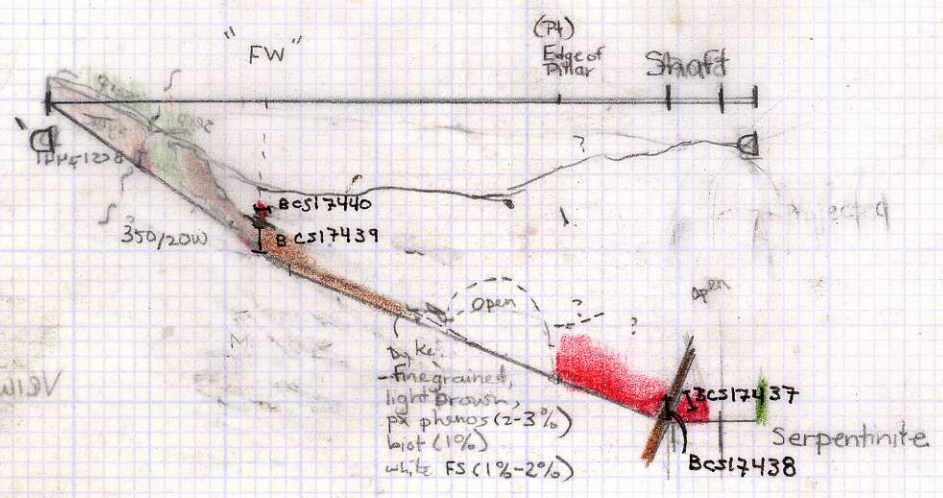 "FW"
(P4)
Edge of
Pillar
Shaft
?
BCS17440
BCS17439
350/20W
open
open
?
?
Dyke:
- Fine grained,
light brown,
px phenos (2-3%)
biot (1%)
white FS (1%-2%)
BCS17437
Serpentinite
BCS17438